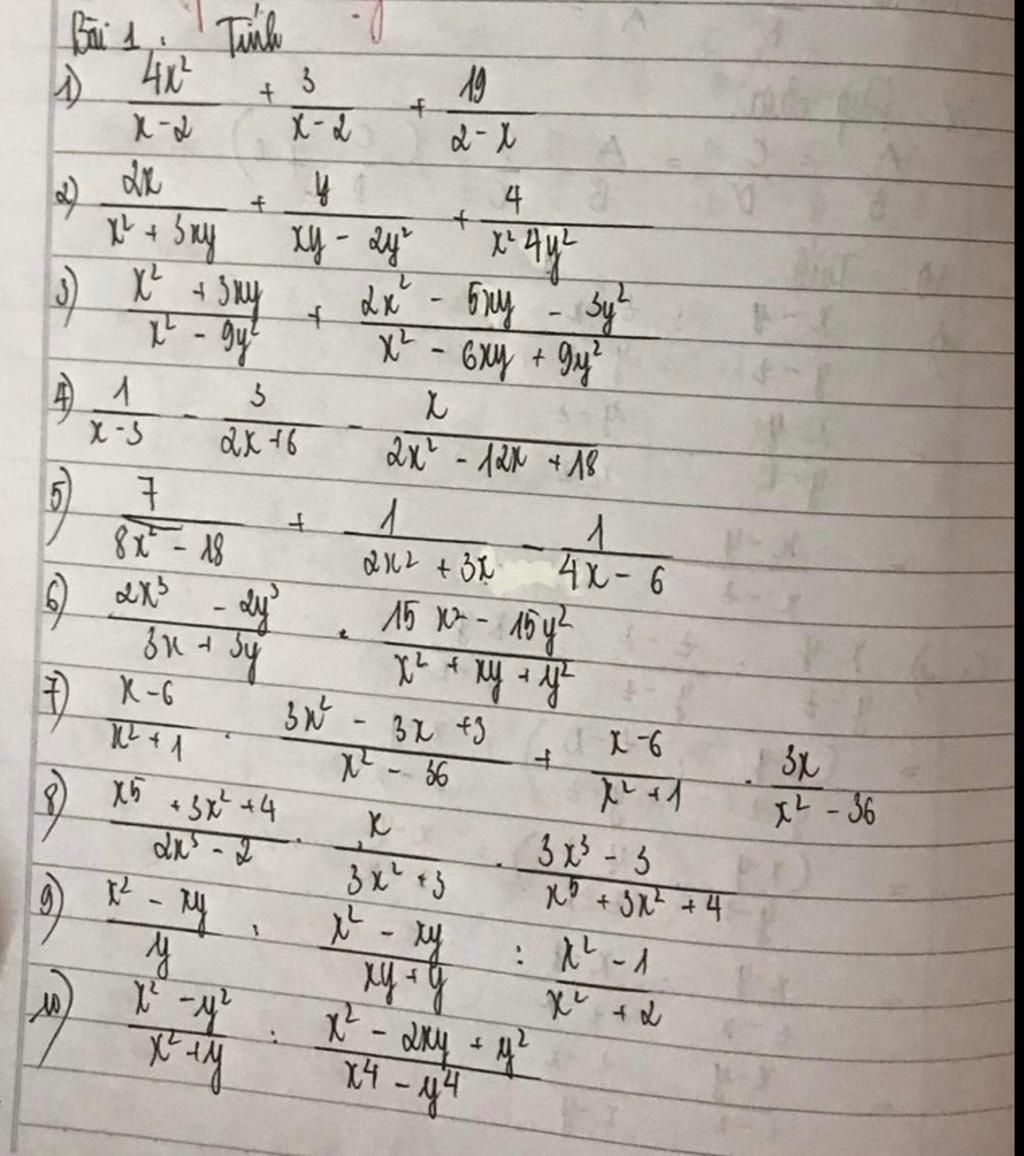 Bài 1: Tính
1) 4x²/(x-2) + 3/(x-2) + 19/(2-x)
2) 2x/(x² + 3xy) + y/(xy - 2y²) + 4/(x² 4y²)
3) (x² + 3xy)/(x² - 9y²) + (2x² - 5xy - 3y²)/(x² - 6xy + 9y²)
4) 1/(x-3) - 3/(2x+6) - x/(2x² - 12x + 18)
5) 7/(8x² - 18) + 1/(2x² + 3x) - 1/(4x - 6)
6) (2x³ - 2y³)/(3x + 3y) . (15x² - 15y²)/(x² + xy + y²)
7) (x-6)/(x²+1) . (3x² - 3x + 3)/(x² - 36) + (x-6)/(x²+1) . 3x/(x² - 36)
8) (x⁵ + 3x² + 4)/(2x³ - 2) . x/(3x² + 3) . (3x³ - 3)/(x⁵ + 3x² + 4)
9) (x² - xy)/y : (x² - xy)/(xy + y) : (x² - 1)/(x² + 2)
10) (x² - y²)/(x² + y) : (x² - 2xy + y²)/(x⁴ - y⁴)